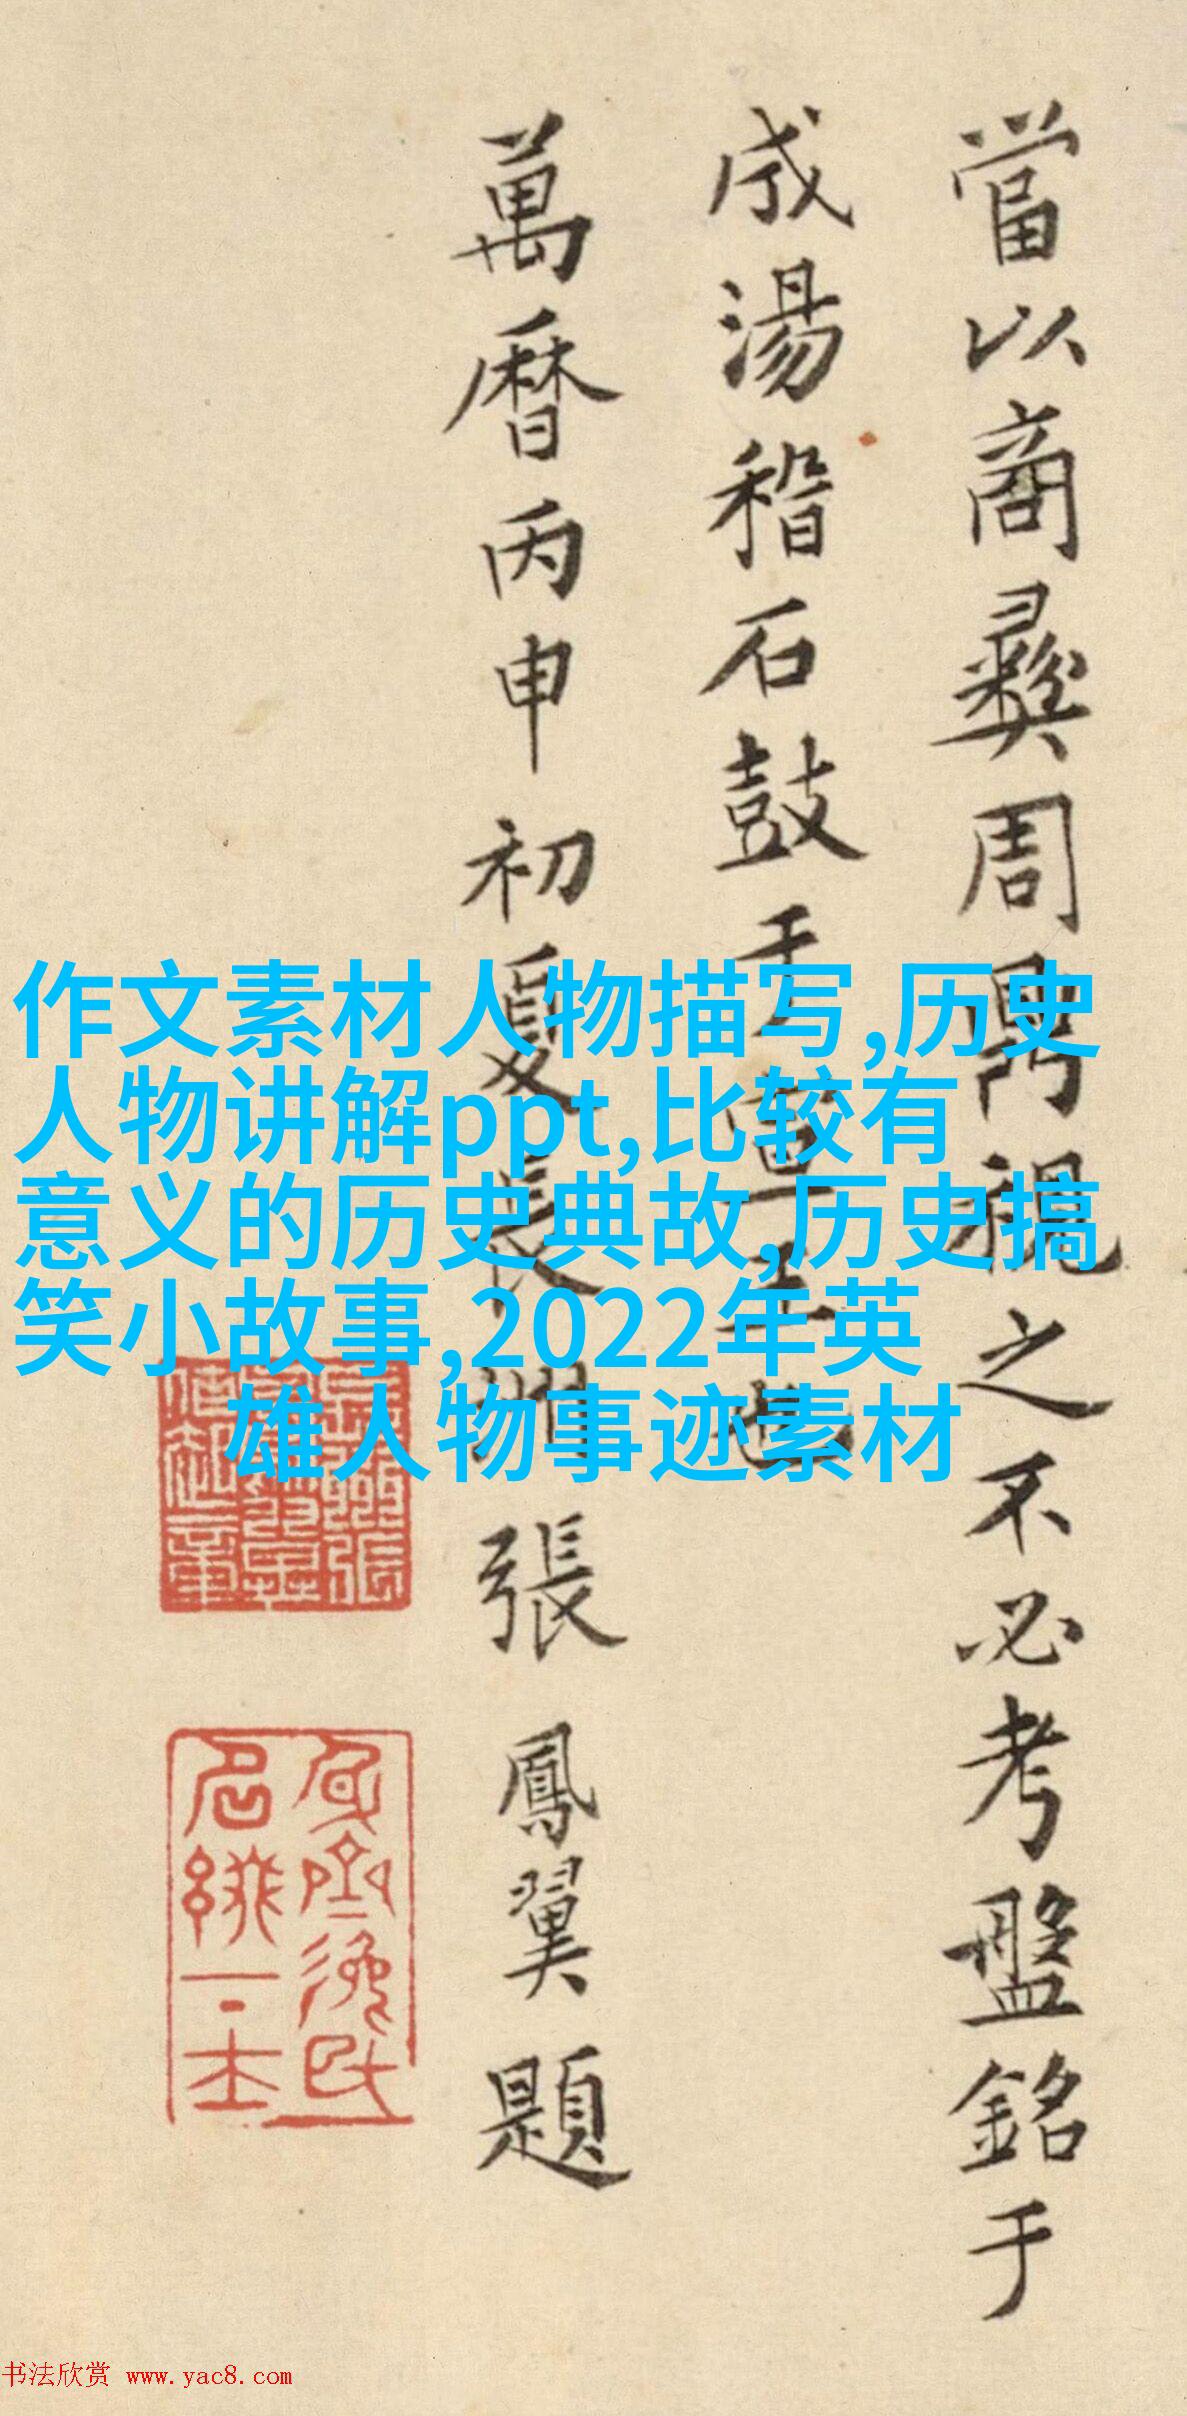 當以商彝周鼎視之不必考盤銘于
成湯稽石鼓于宣王也
萬曆丙申初夏長洲張鳳翼題
作文素材人物描写,历史
人物讲解ppt,比较有
意义的历史典故,历史搞
笑小故事,2022年英
雄人物事迹素材
书法欣赏 www.yac8.com